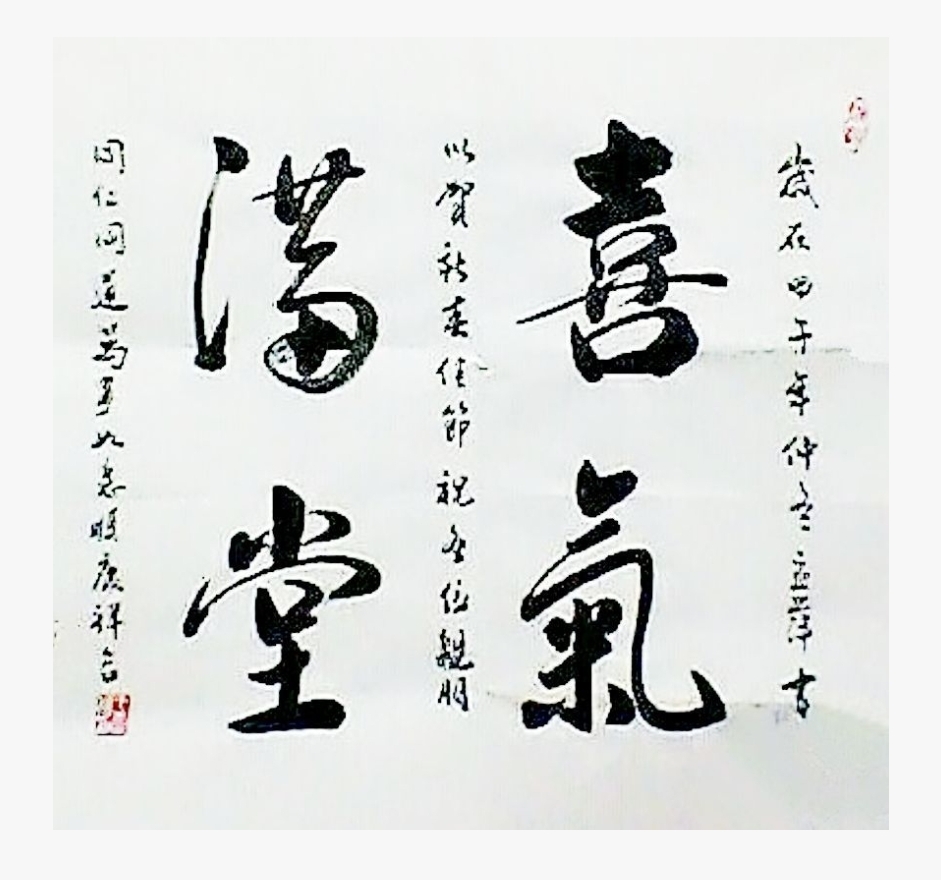 歲在甲午年仲冬
喜氣
以賀新春佳節祝各位親朋
滿堂
同仁同道萬事如意順康祥合